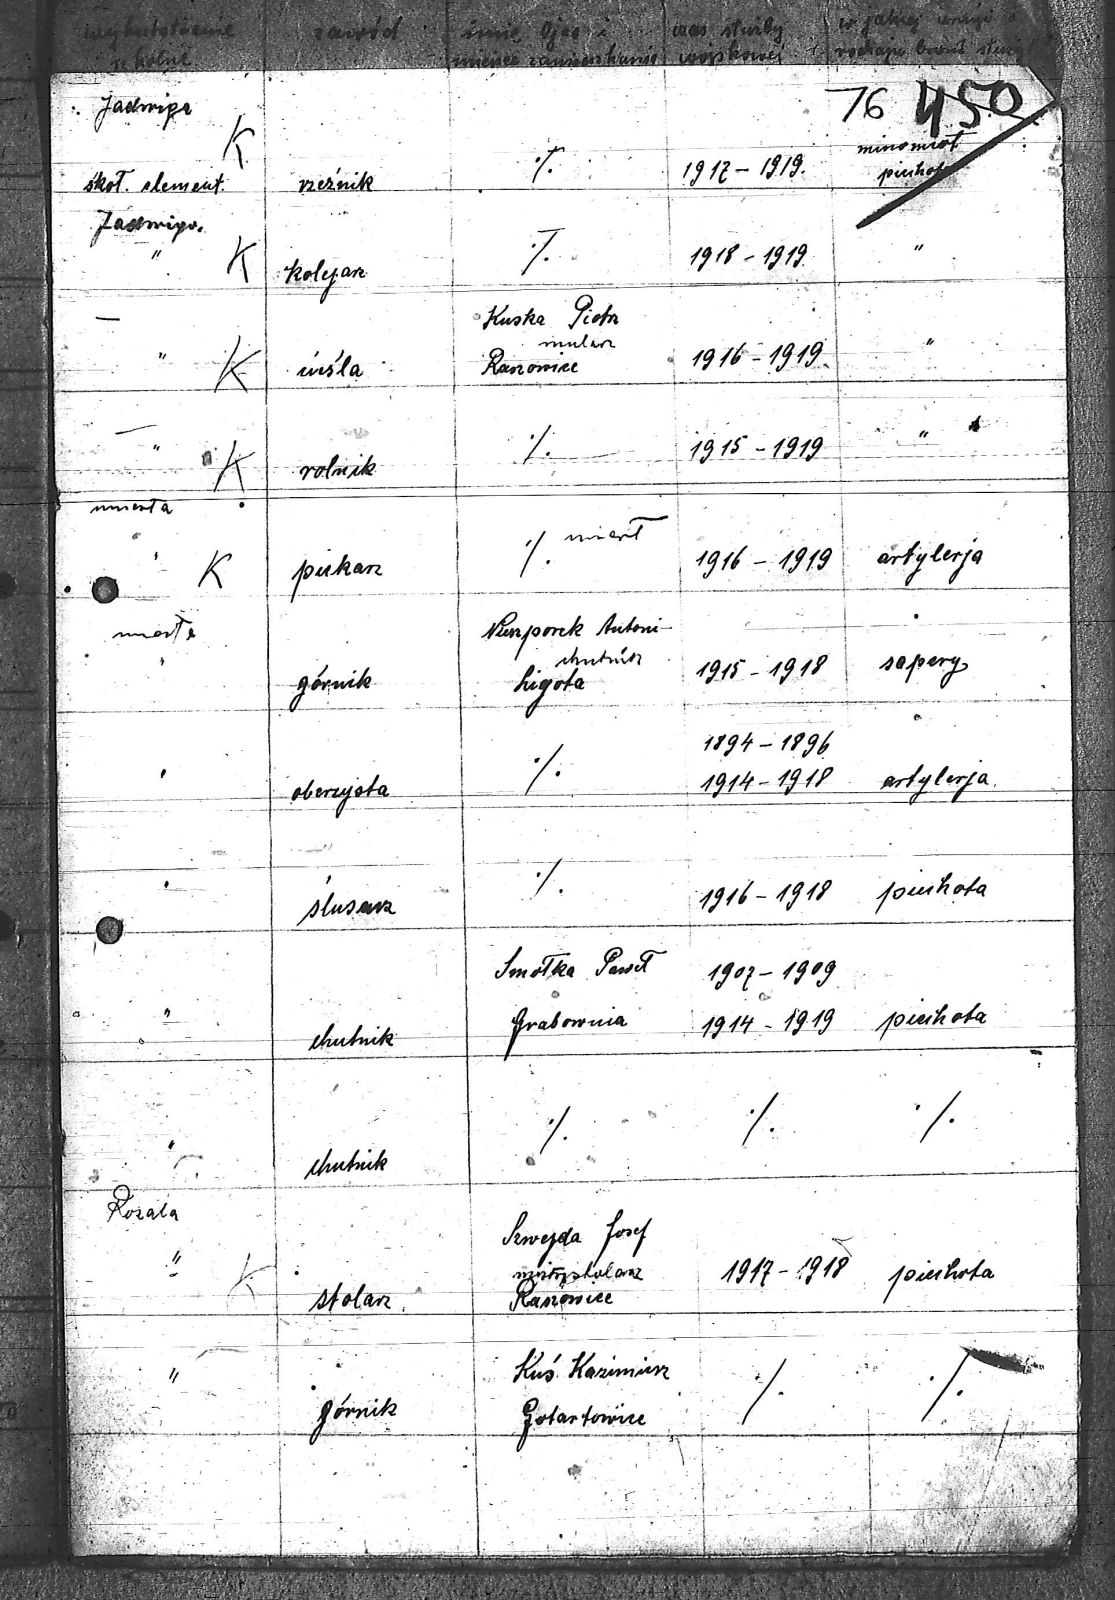 wykształcenie szkolne zawód imię Ojca i miejsce zamieszkania czas służby wojskowej w jakiej armji i rodzaju broni służył
76 450
Jadwiga
K
minomiot
skoł. element. rzeźnik ./. 1917 - 1919. piechota
Jadwiga.
" K kolejarz ./. 1918 - 1919. "
—
Kuska Piotr
mularz
" K cieśla Raszowice 1916 - 1919. "
—
" K rolnik ./. 1915 - 1919 "
umarła
" K piekarz ./. umarł 1916 - 1919 artylerja
umarła
Nieszporek Antoni
chutnik
" górnik Ligota 1915 - 1918 sapery
1894 - 1896
" oberzysta ./. 1914 - 1918 artylerja
" ślusarz ./. 1916 - 1918 piechota
Smołka Paweł 1907 - 1909
" chutnik Grabownia 1914 - 1919 piechota
" chutnik ./. ./. ./.
Rozala
Szwejda Josef
" K stolarz Raszowice 1917 - 1918 piechota
Kuś Kazimierz
" górnik Gotartowice ./. ./.